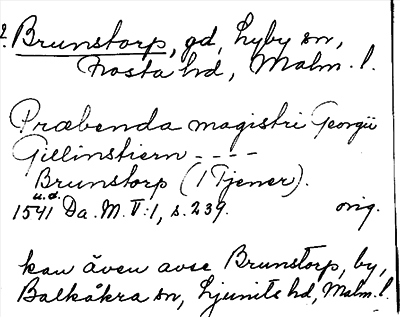 2. Brunstorp, gd, Lyby sn,
Frosta hd, Malm. l.
Præbenda magistri Georgii
Gillinstiern ----
Brunstorp (1 Tjener).
u.d.
1541 Da. M. V:1, s. 239. orig.
kan även avse Brunstorp, by,
Balkåkra sn, Ljunits hd, Malm. l.